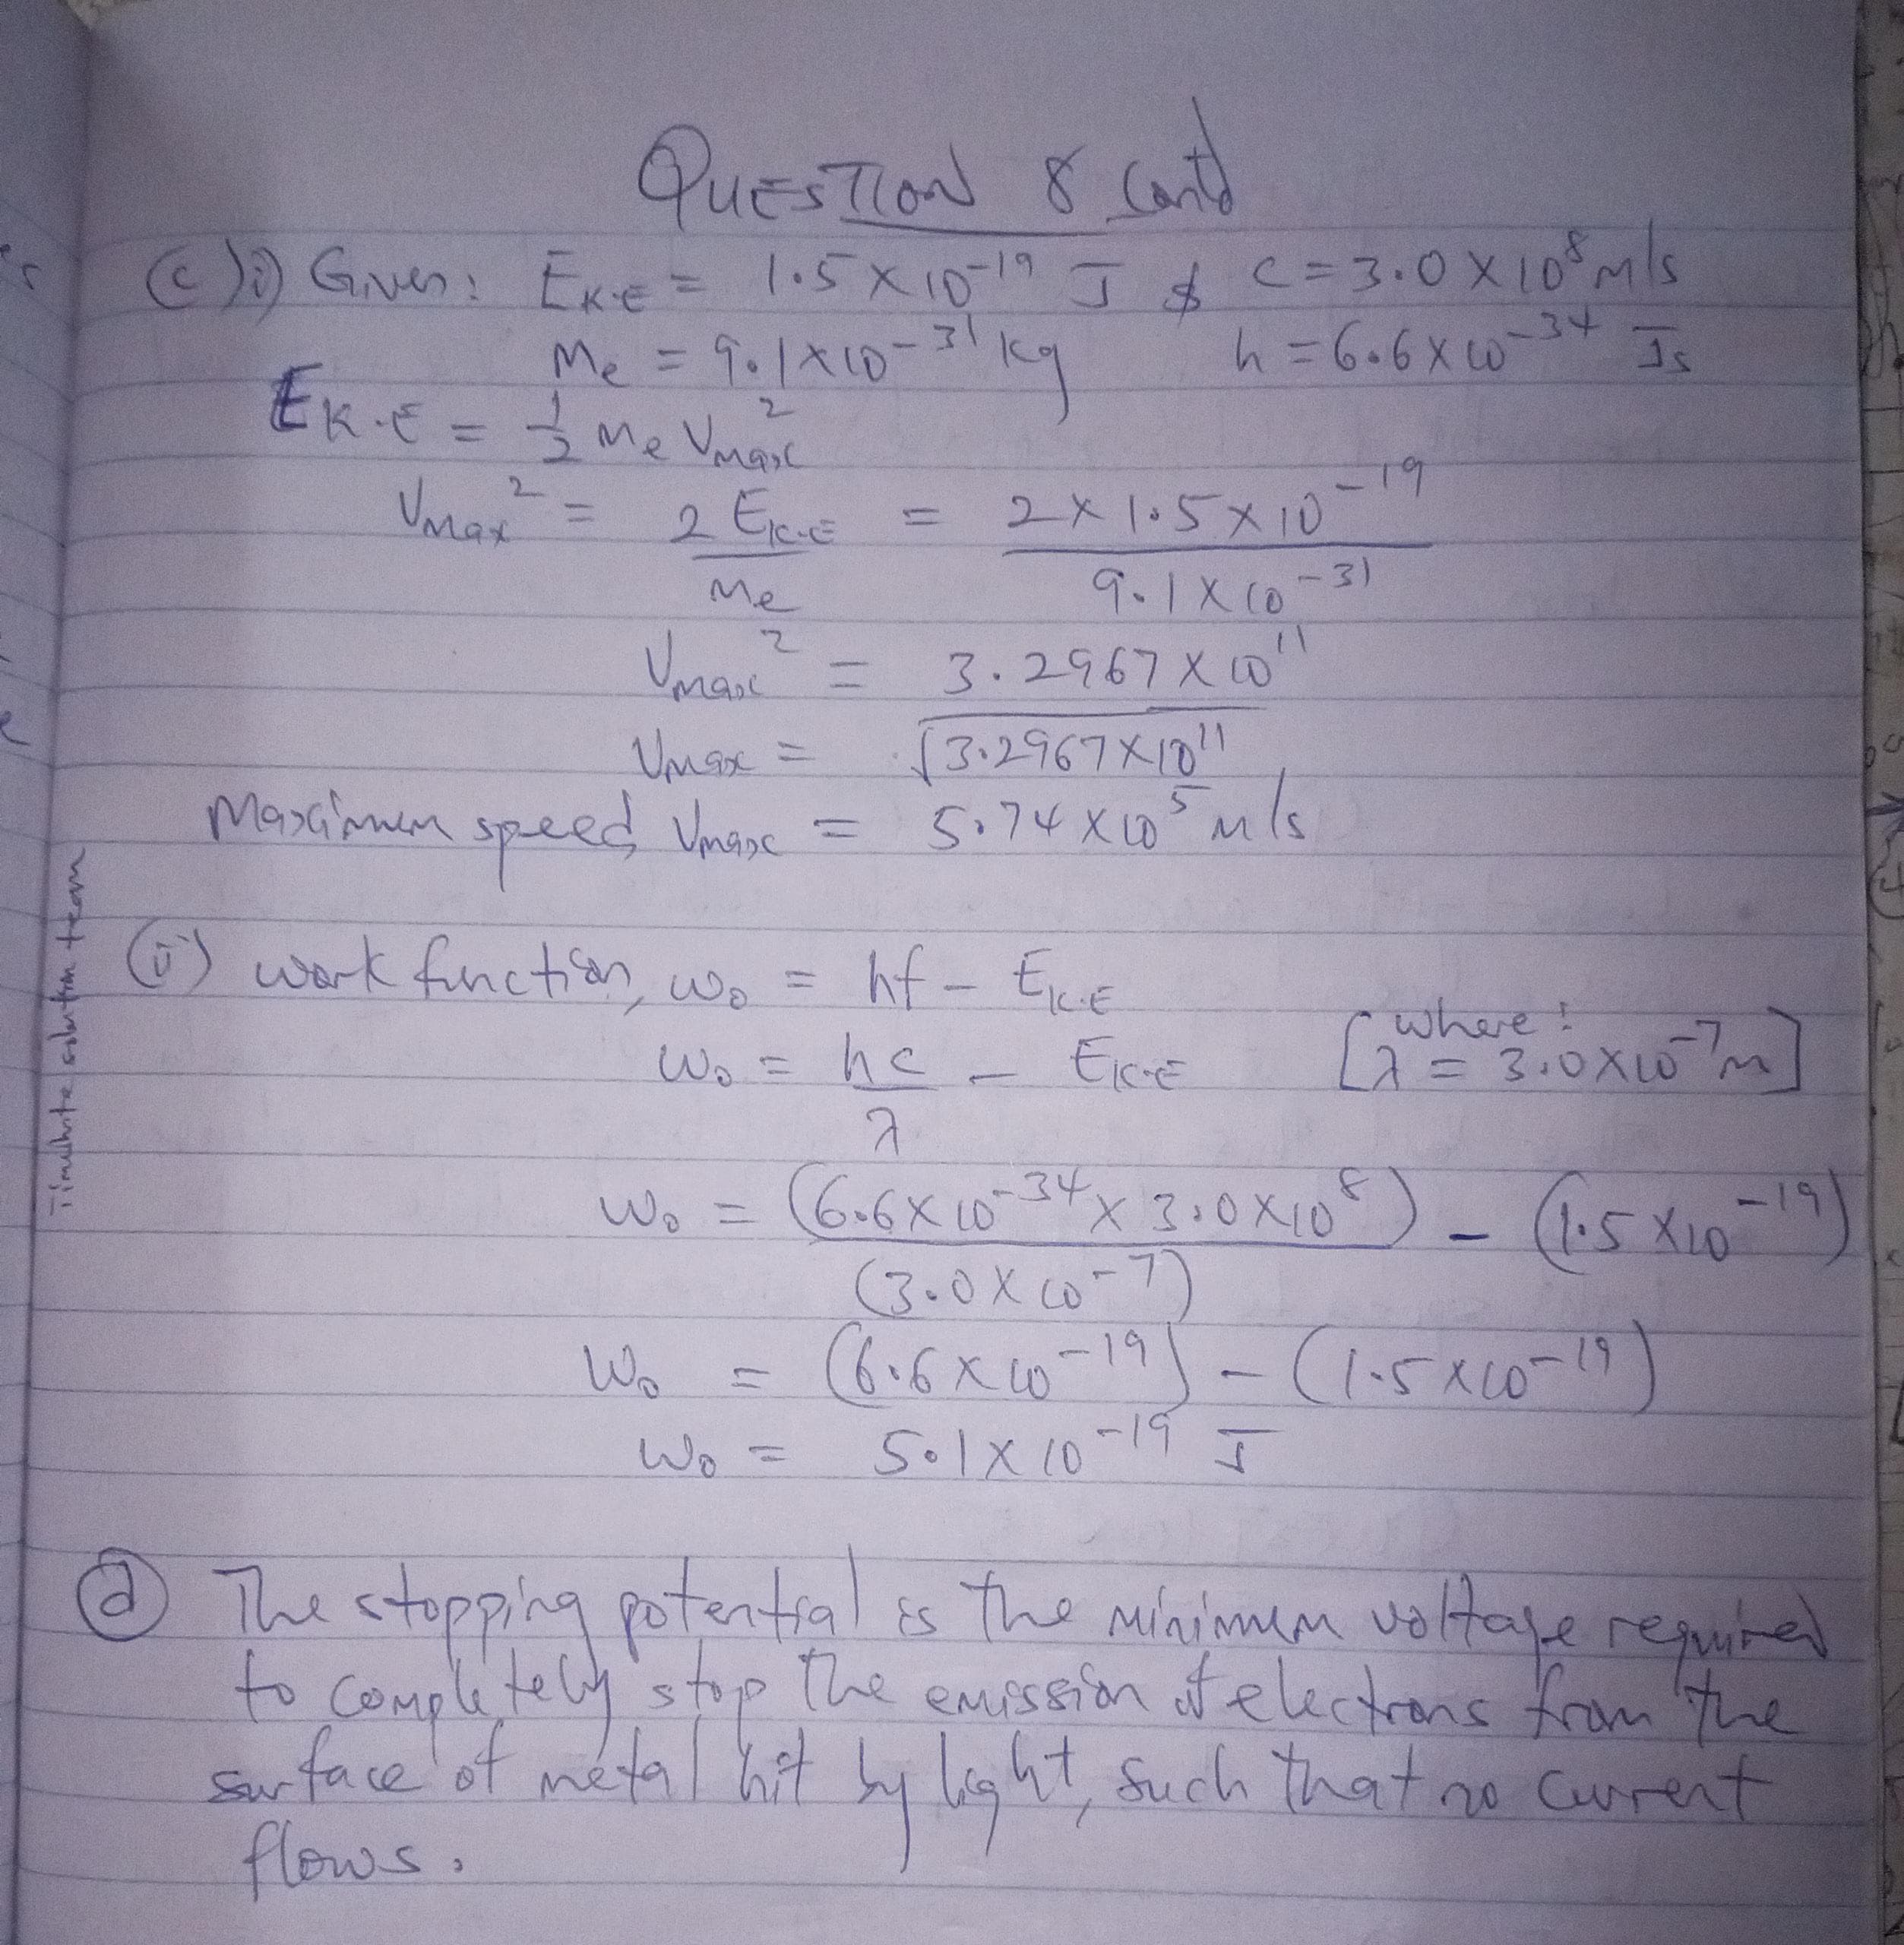 QUESTION 8 Contd
(c) i) Given: E_K.E = 1.5 × 10^-19 J & C = 3.0 × 10^8 m/s
Me = 9.1 × 10^-31 kg h = 6.6 × 10^-34 Js
E_K.E = 1/2 Me Vmax^2
Vmax^2 = 2 E_K.E / Me = 2 × 1.5 × 10^-19 / 9.1 × 10^-31
Vmax^2 = 3.2967 × 10^11
Vmax = √3.2967 × 10^11
Maximum speed, Vmax = 5.74 × 10^5 m/s
(ii) work function, W₀ = hf - E_K.E
W₀ = hc / λ - E_K.E [where: λ = 3.0 × 10^-7 m]
W₀ = (6.6 × 10^-34 × 3.0 × 10^8) / (3.0 × 10^-7) - (1.5 × 10^-19)
W₀ = (6.6 × 10^-19) - (1.5 × 10^-19)
W₀ = 5.1 × 10^-19 J
(d) The stopping potential is the minimum voltage required
to completely stop the emission of electrons from the
surface of metal hit by light, such that no current
flows.
solution team